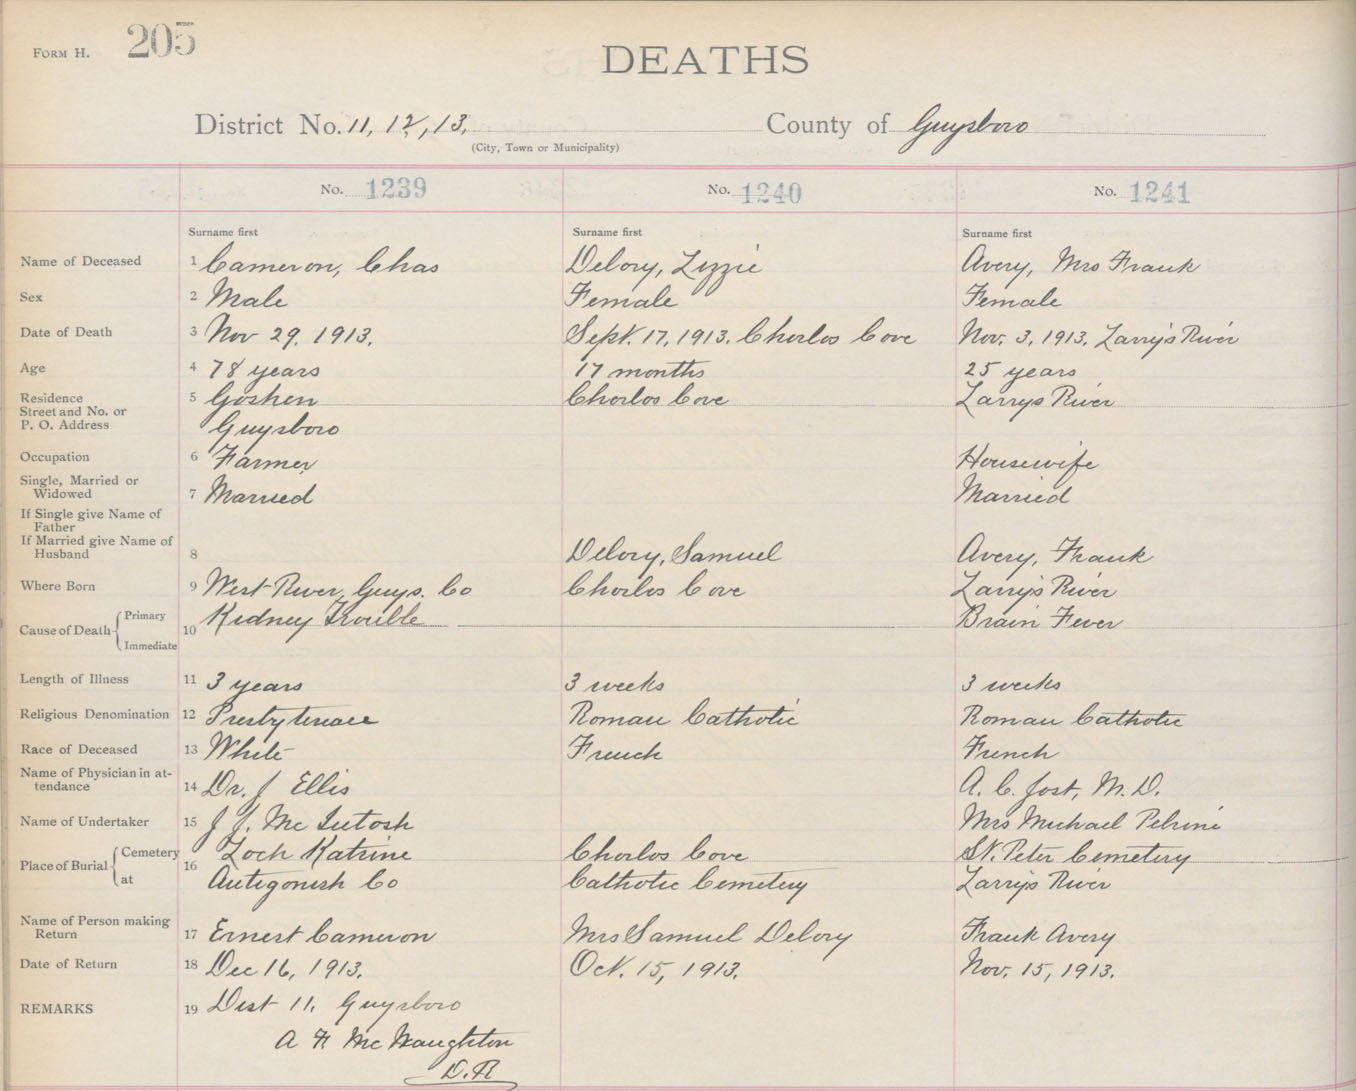 FORM H. 205
DEATHS
District No. 11, 12, 13. County of Guysboro
(City, Town or Municipality)
No. 1239 No. 1240 No. 1241
Surname first Surname first Surname first
Name of Deceased 1 Cameron, Chas Delory, Lizzie Avery, Mrs Frank
Sex 2 Male Female Female
Date of Death 3 Nov 29, 1913. Sept. 17, 1913. Chorlos Cove Nov. 3, 1913. Larry's River
Age 4 78 years 17 months 25 years
Residence 5 Goshen Chorlos Cove Larrys River
Street and No. or
P. O. Address Guysboro
Occupation 6 Farmer Housewife
Single, Married or
Widowed 7 Married Married
If Single give Name of
Father
If Married give Name of
Husband 8 Delory, Samuel Avery, Frank
Where Born 9 West River, Guys. Co Chorlos Cove Larry's River
Cause of Death Primary Immediate 10 Kidney Trouble Brain Fever
Length of Illness 11 3 years 3 weeks 3 weeks
Religious Denomination 12 Roman Catholic Roman Catholic
Race of Deceased 13 White French French
Name of Physician in at-
tendance 14 Dr. J Ellis A. C. Jost, M. D.
Name of Undertaker 15 J J. McIntosh Mrs Michael Pelrine
Place of Burial Cemetery 16 Loch Katrine Chorlos Cove St. Peter Cemetery
at Antigonish Co Catholic Cemetery Larrys River
Name of Person making
Return 17 Ernest Cameron Mrs Samuel Delory Frank Avery
Date of Return 18 Dec 16, 1913. Oct. 15, 1913. Nov. 15, 1913.
REMARKS 19 Dist 11. Guysboro
A F McNaughton
D.R